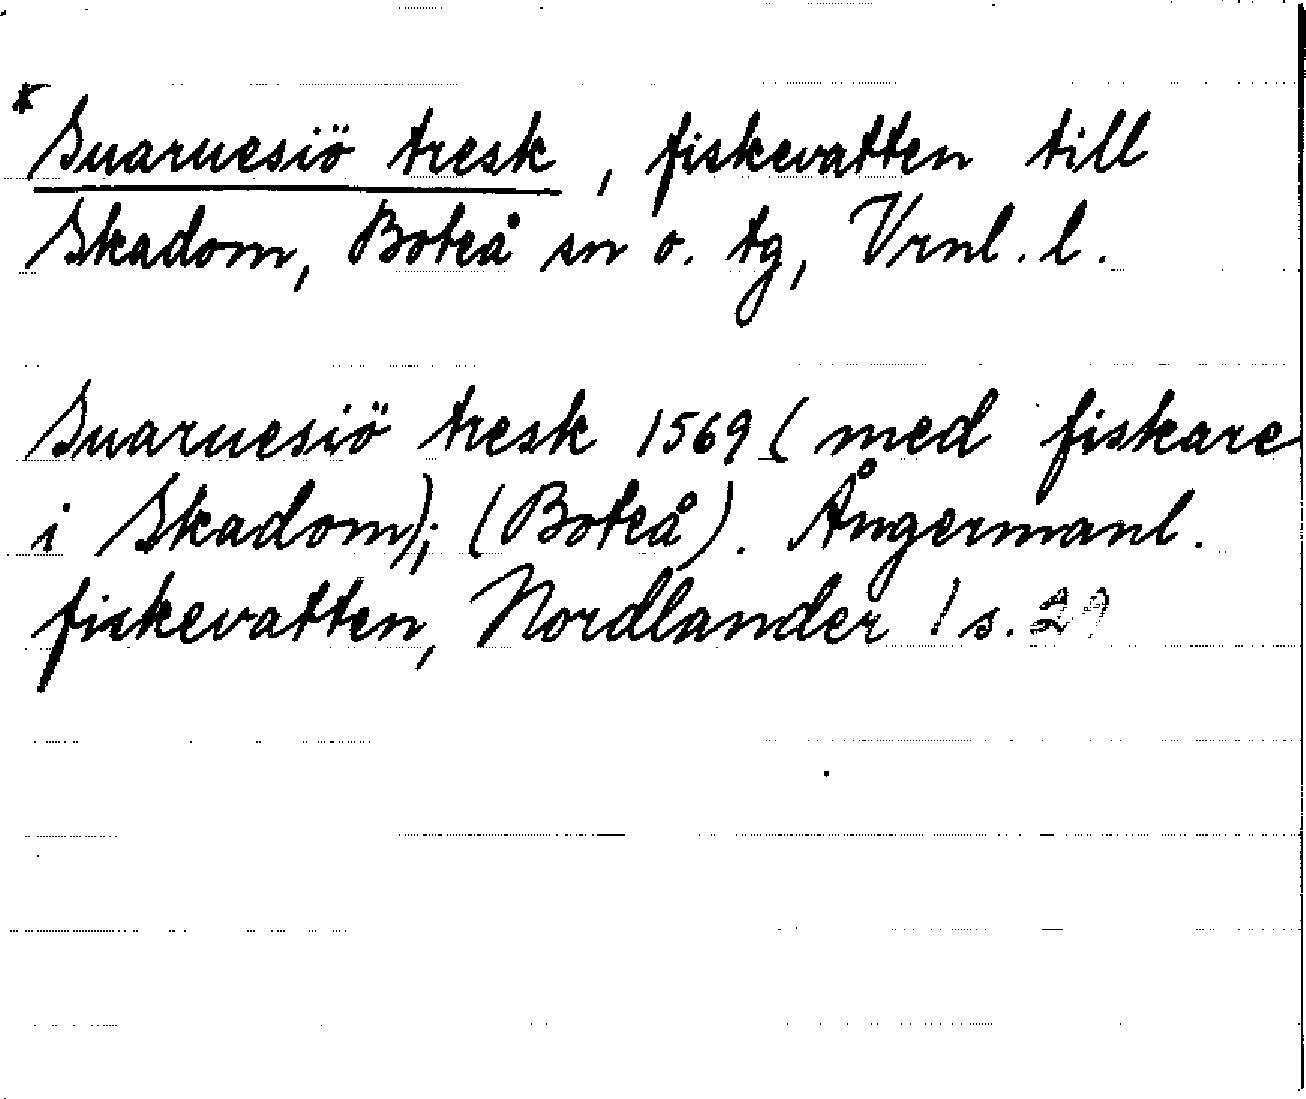 * Suaruesiö tresk, fiskevatten till
Skadom, Boteå sn o. tg, Vrnl. l.
Suaruesiö tresk 1569 (med fiskare
i Skadom); (Boteå). Ångermanl.
fiskevatten, Nordlander 1 s. 29